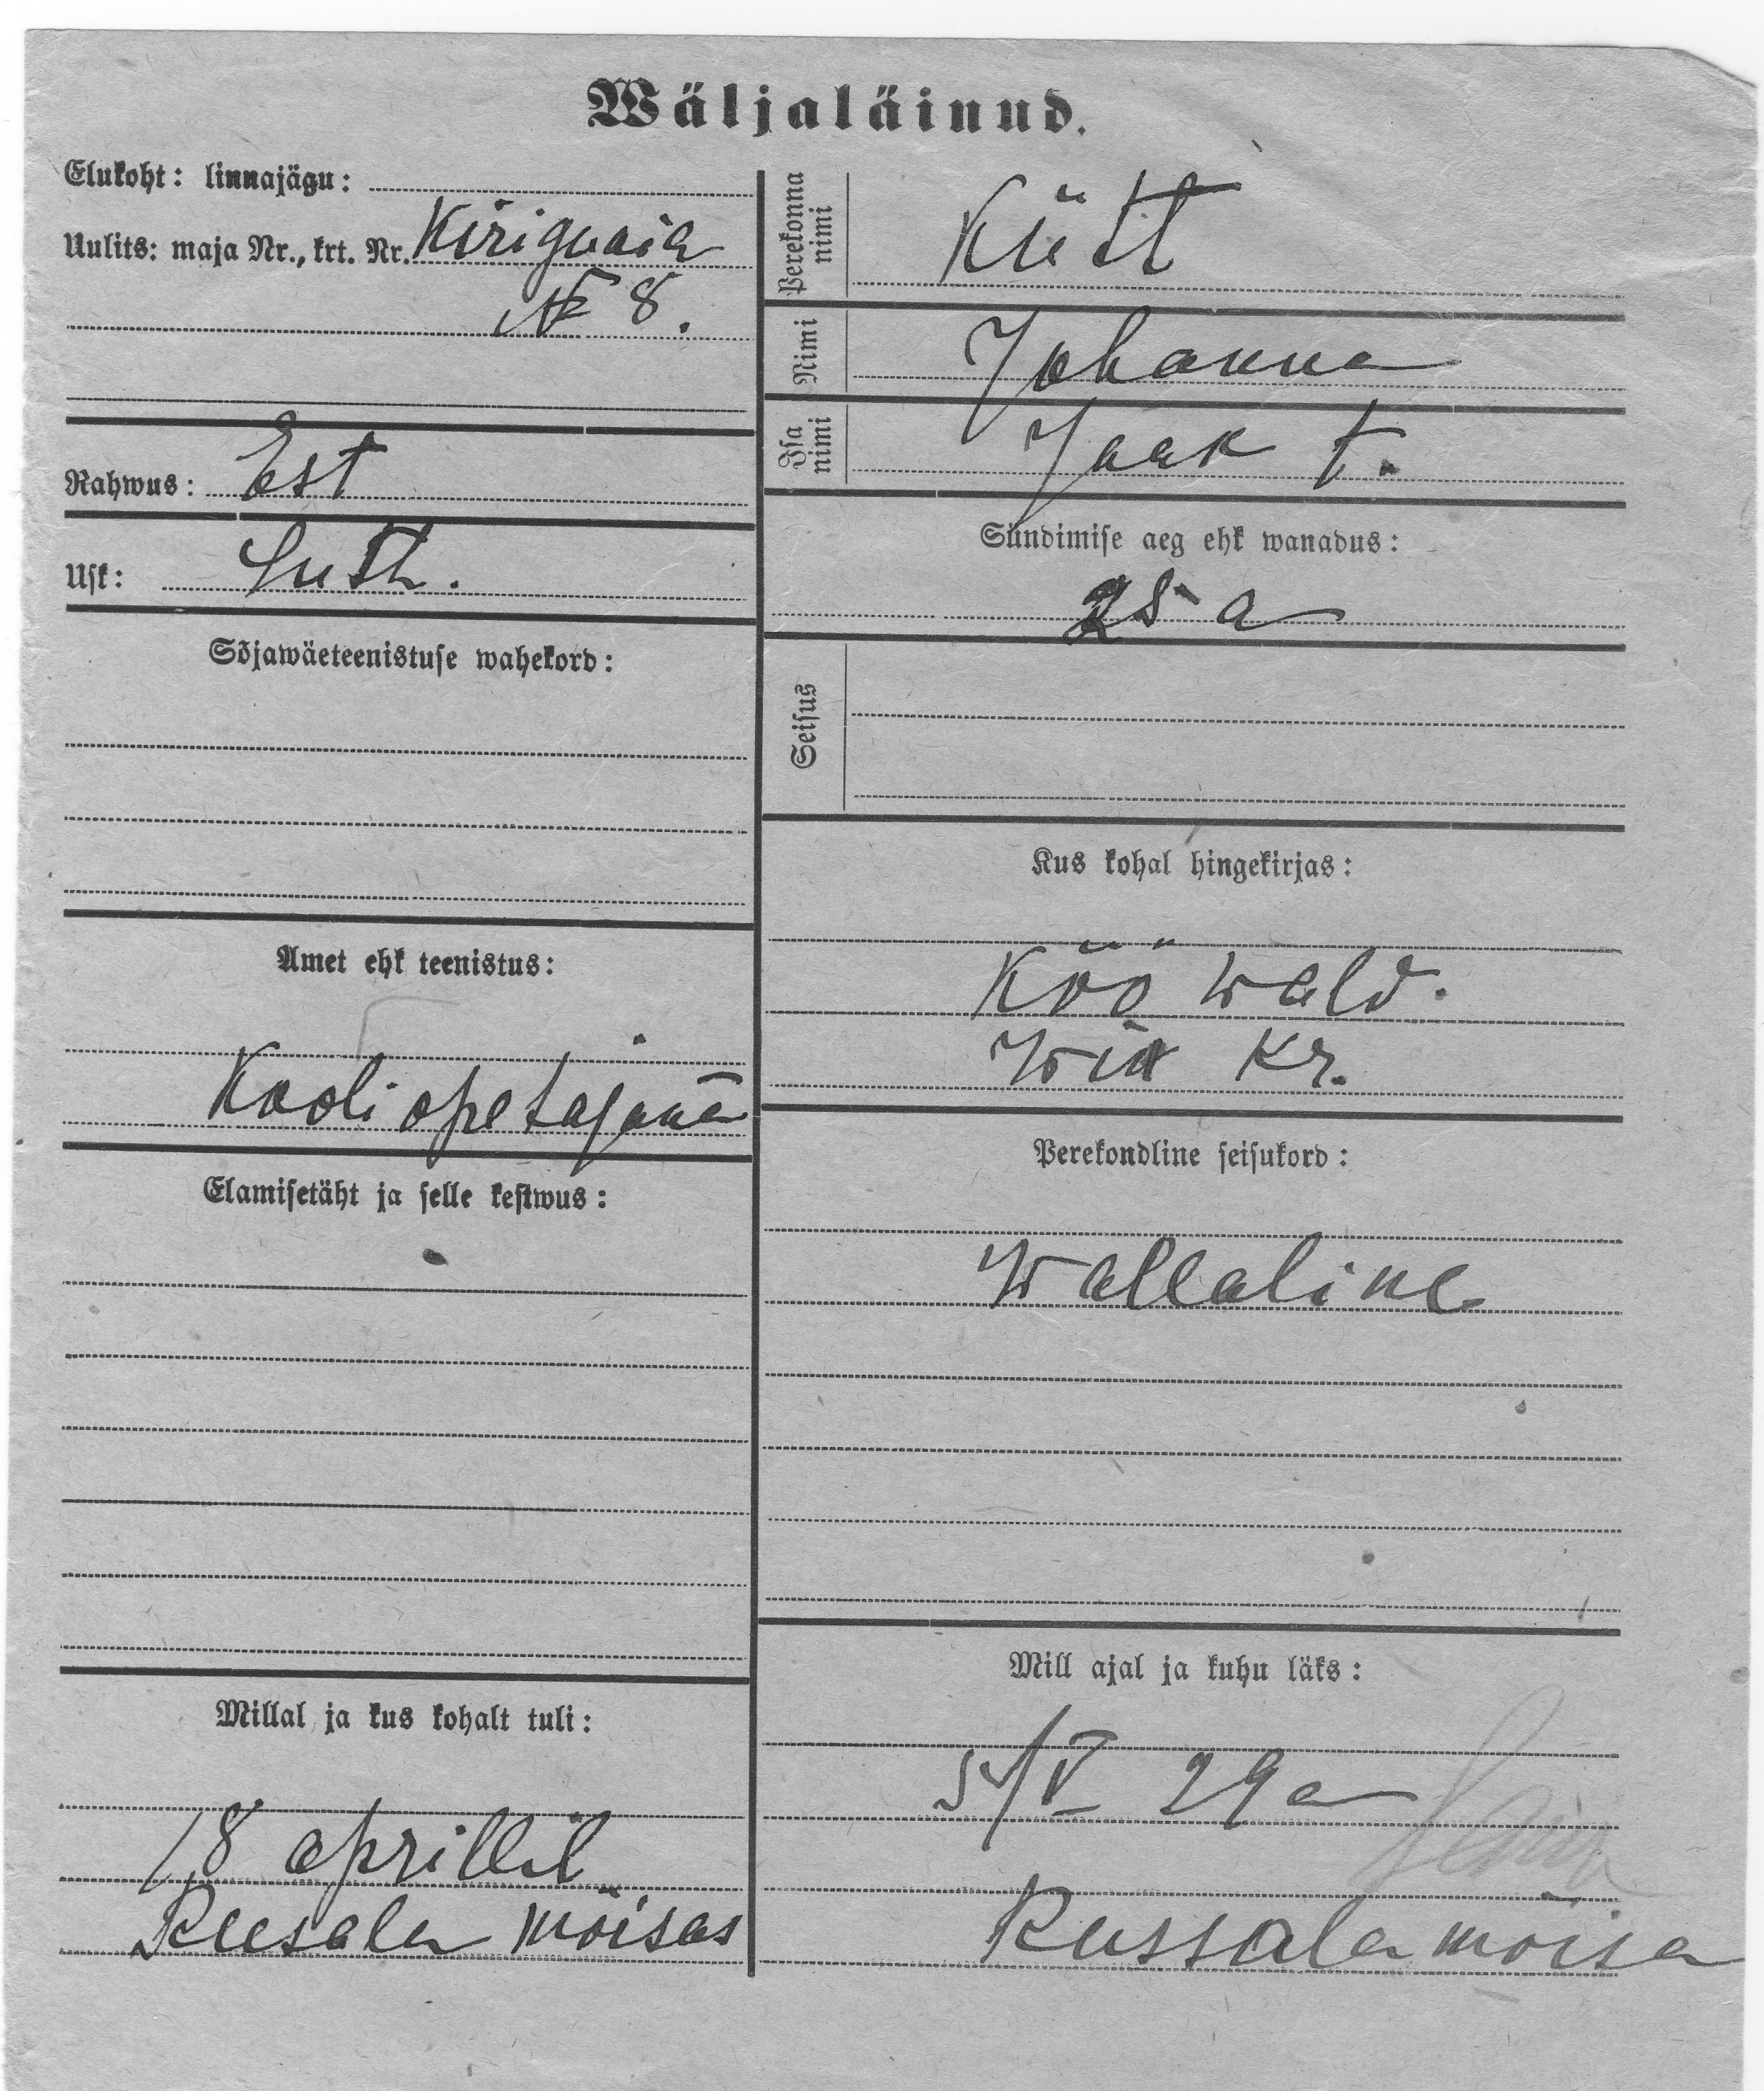 Wäljaläinud.
Elukoht: linnajägu:
Uulits: maja Nr., krt. Nr. Kiriguaia
№ 8.
Rahwus: Est
Usk: Luth.
Sõjawäeteenistuse wahekord:
Amet ehk teenistus:
Kooliopetajana
Elamisetäht ja selle kestwus:
Millal ja kus kohalt tuli:
18 aprillil
Russala mõisas
Perekonna nimi Kütt
Nimi Johanna
Isa nimi Jaak t.
Sündimise aeg ehk wanadus:
25 a
Seisus
Kus kohal hingekirjas:
Kõo wald.
Wil Kr.
Perekondline seisukord:
Wallaline
Mill ajal ja kuhu läks:
5/V 29 a
Russala mõisa